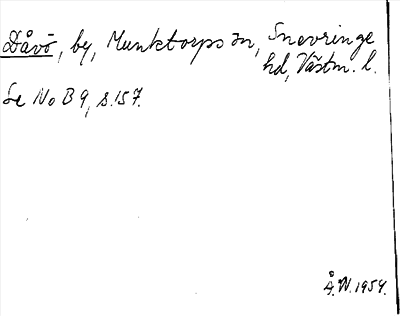 Dåvö, by, Munktorps sn, Snevringe
hd, Västm. l.
Se No B 9, s. 157.
Å.W. 1954.